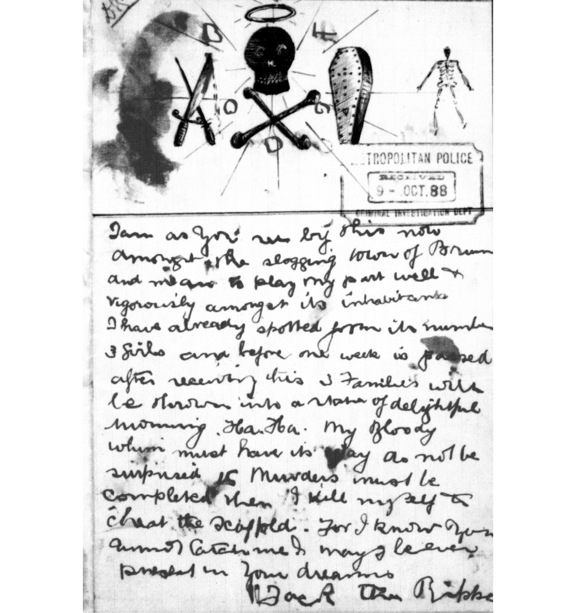 TROPOLITAN POLICE
RECEIVED
9 - OCT.88
CRIMINAL INVESTIGATION DEPT
I am as you see by this now
amongst the slogging town of Brum
and mean to play my part well &
vigorously amongst its inhabitants
I have already spotted from its number
3 Girls and before one week is passed
after receiving this 3 Families will
be thrown into a state of delightful
mourning. Ha. Ha. My Bloody
whim must have its way do not be
surprised 15 Murders must be
completed then I kill myself to
cheat the scaffold. For I know you
cannot catch me & I may be ever
present in your dreams
Jack the Rippe